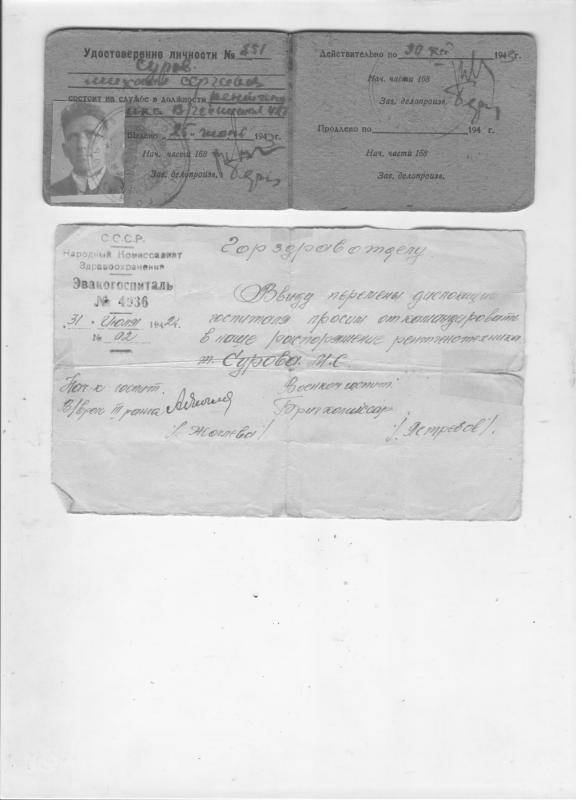 Удостоверение личности № 251
Суров
михаил сергеевич
состоит на службе в должности рентгено
Выдано „25“ июль 1942 г.
Нач. части 168
Зав. делопроизв.
Действительно по 30 XII 1942 г.
Нач. части 168
Зав. делопроизв.
Продлено по 194 г.
Нач. части 168
Зав. делопроизв.
С.С.С.Р.
Народный Комиссариат
Здравоохранения
Эвакогоспиталь
№ 4936
31 - Июля 1942 г.
№ 92
Горздравотделу
Ввиду перемены дислокации
госпиталя просим откомандировать
в наше распоряжение рентгенотехника
т. Сурова М.С
Нач-к госпит.
В/врач III ранга
/Жоглева/
Военком госпит.
Бат. комиссар
/Ястребов/.